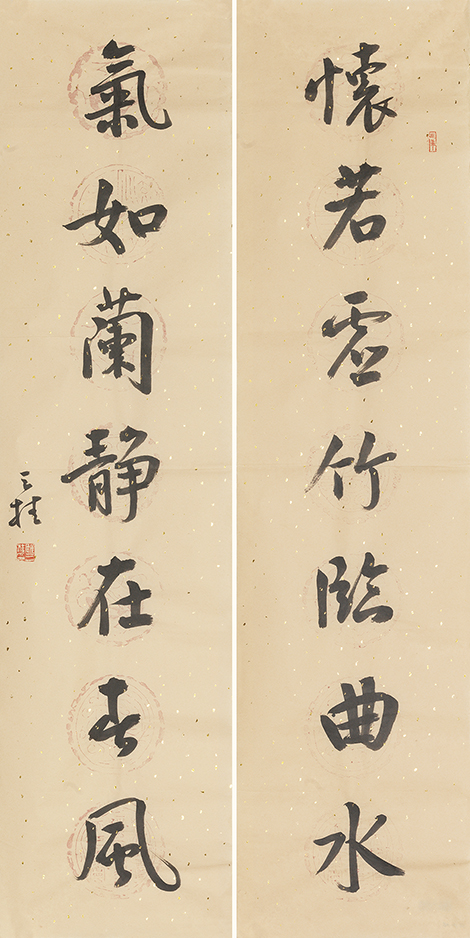 懷若虛竹臨曲水
氣如蘭靜在春風